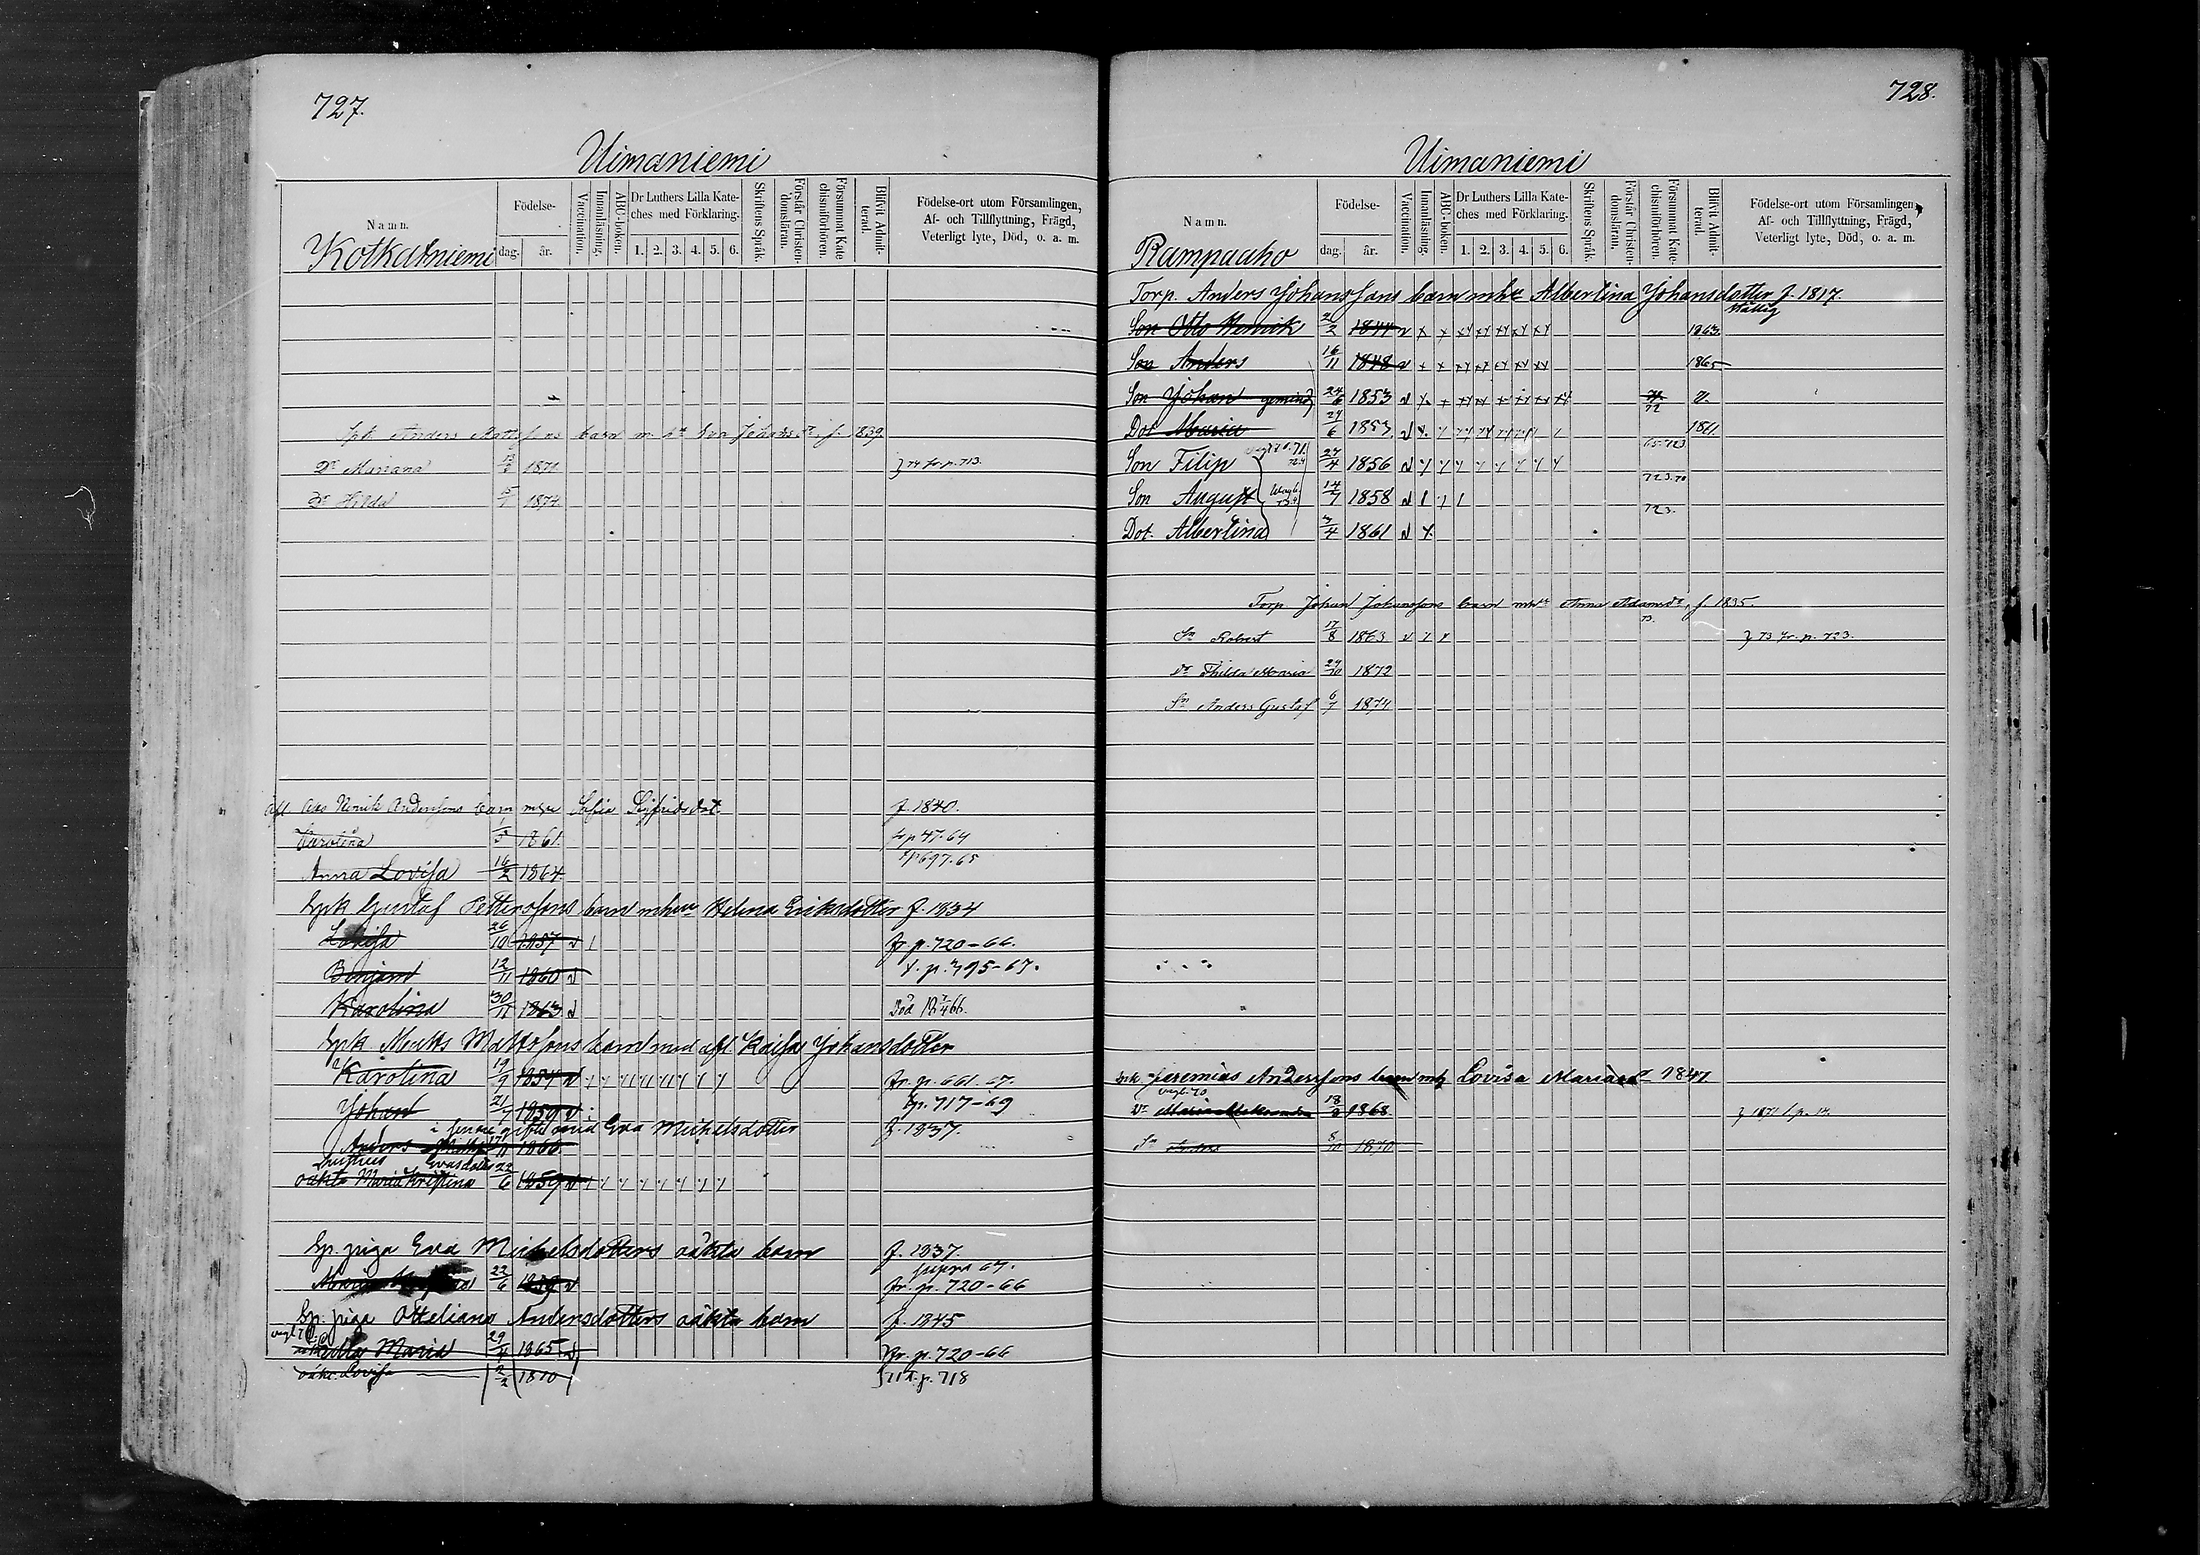 727.
Uimaniemi
Namn.
Kotkatniemi
Födelse-
dag. år.
Vaccination.
Innanläsning.
ABC-boken.
Dr Luthers Lilla Kate-
ches med Förklaring.
1. 2. 3. 4. 5. 6.
Skriftens Språk.
Förstår Christen-
domsläran.
Försummat Kate-
chismiförhören.
Blifvit Admit-
terad.
Födelse-ort utom Församlingen,
Af- och Tillflyttning, Frägd,
Veterligt lyte, Död, o. a. m.
Spk Anders Mattssons barn m. hu Eva Johansdr. f. 1839.
Dr Mariana 1871 74 fr. p. 713.
Dr Hilda 1874
Afl Otto Henrik Anderssons barn mhu Sofia Sigfridsdot. f. 1840.
Karolina 1/5 1861. fr p 47-64
Anna Lovisa 16/2 1864 697-65
Spk Gustaf Petterssons barn mhu Helena Eriksdotter f. 1834
Lovisa 26/10 1857 fr p. 720-66.
Benjam 12/11 1860 t. p. 795-67.
Karolina 30/11 1863 Död 18 7/4 66.
Spk Matts Mattssons barn med afl. Kaisa Johansdotter
Karolina 19/9 1854 fr. p. 661-67.
Johan 21/7 1859 p. 717-69
i senare gifte med Eva Michelsdotter f. 1837.
Anders 17/11 1866
hustrus Evas dotter
oäkta Maria Kristina 22/6 1859
Sp. piga Eva Michelsdotters oäkta barn f. 1837.
supra 67.
Maria 22/6 1859 fr. p. 720-66
Sp. piga Otteliana Andersdotters oäkta barn f. 1845
Maria 29/4 1865 fr. p. 720-66
oäkt. Lovisa 2/2 1870 71 t. p. 718
728.
Uimaniemi
Namn.
Rampaaho
Födelse-
dag. år.
Vaccination.
Innanläsning.
ABC-boken.
Dr Luthers Lilla Kate-
ches med Förklaring.
1. 2. 3. 4. 5. 6.
Skriftens Språk.
Förstår Christen-
domsläran.
Försummat Kate-
chismiförhören.
Blifvit Admit-
terad.
Födelse-ort utom Församlingen,
Af- och Tillflyttning, Frägd,
Veterligt lyte, Död, o. a. m.
Torp. Anders Johanssons barn mhu Albertina Johansdotter f. 1817.
Son Otto Henrik 21/2 1844 1863.
Son Anders 16/11 1848 1865
Son Johan 24/6 1853 72
Dot Maria 24/6 1853 1861.
Son Filip 27/4 1856 65.723
Son August 14/7 1858 723.70
Dot. Albertina 3/4 1861 723.
Torp Johan Johanssons barn mhu Anna Adamsdr, f. 1835.
Sn Robert 17/8 1863 73 fr. p. 723.
Dr Thilda Maria 24/10 1872
Sn Anders Gustaf 6/7 1874
Spk Jeremias Anderssons barn mh Lovisa Mariana 1847
Dr Maria 18/9 1868 1871 t. p. 14
Sn Anders 1870